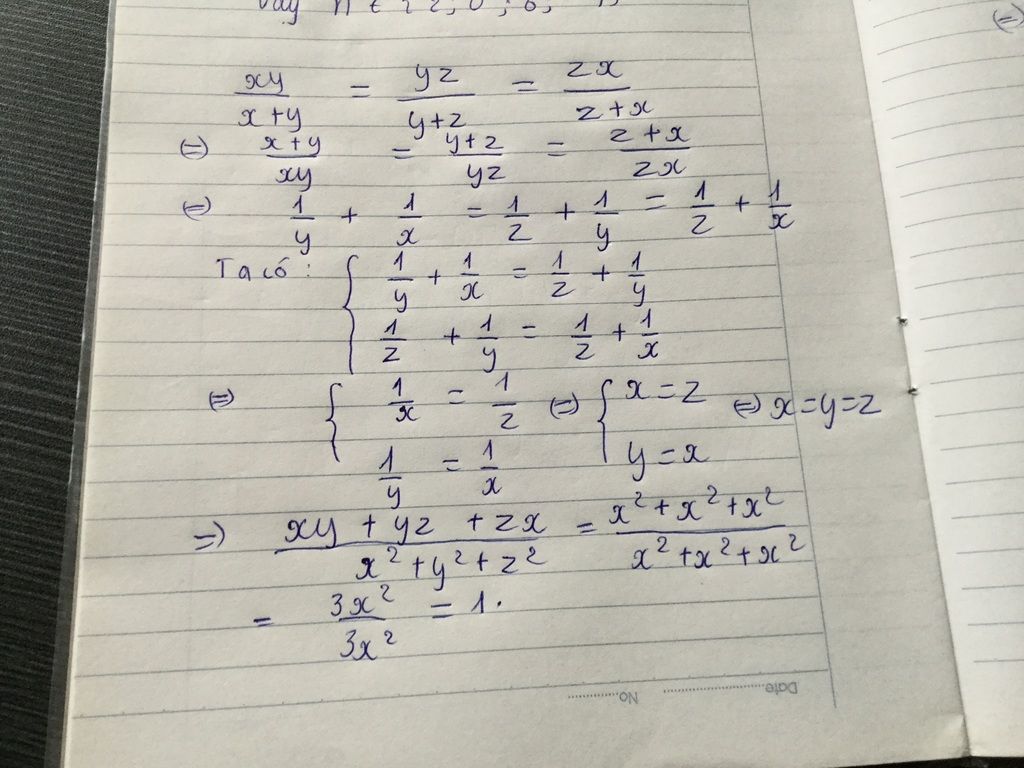 xy/(x+y) = yz/(y+z) = zx/(z+x)
(=) (x+y)/xy = (y+z)/yz = (z+x)/zx
(=) 1/y + 1/x = 1/z + 1/y = 1/z + 1/x
Ta có : { 1/y + 1/x = 1/z + 1/y
1/z + 1/y = 1/z + 1/x
(=) { 1/x = 1/z (=) { x=z (=) x=y=z
1/y = 1/x y=x
=) (xy + yz + zx)/(x²+y²+z²) = (x²+x²+x²)/(x²+x²+x²)
= 3x²/3x² = 1.
Date
No.
(=)